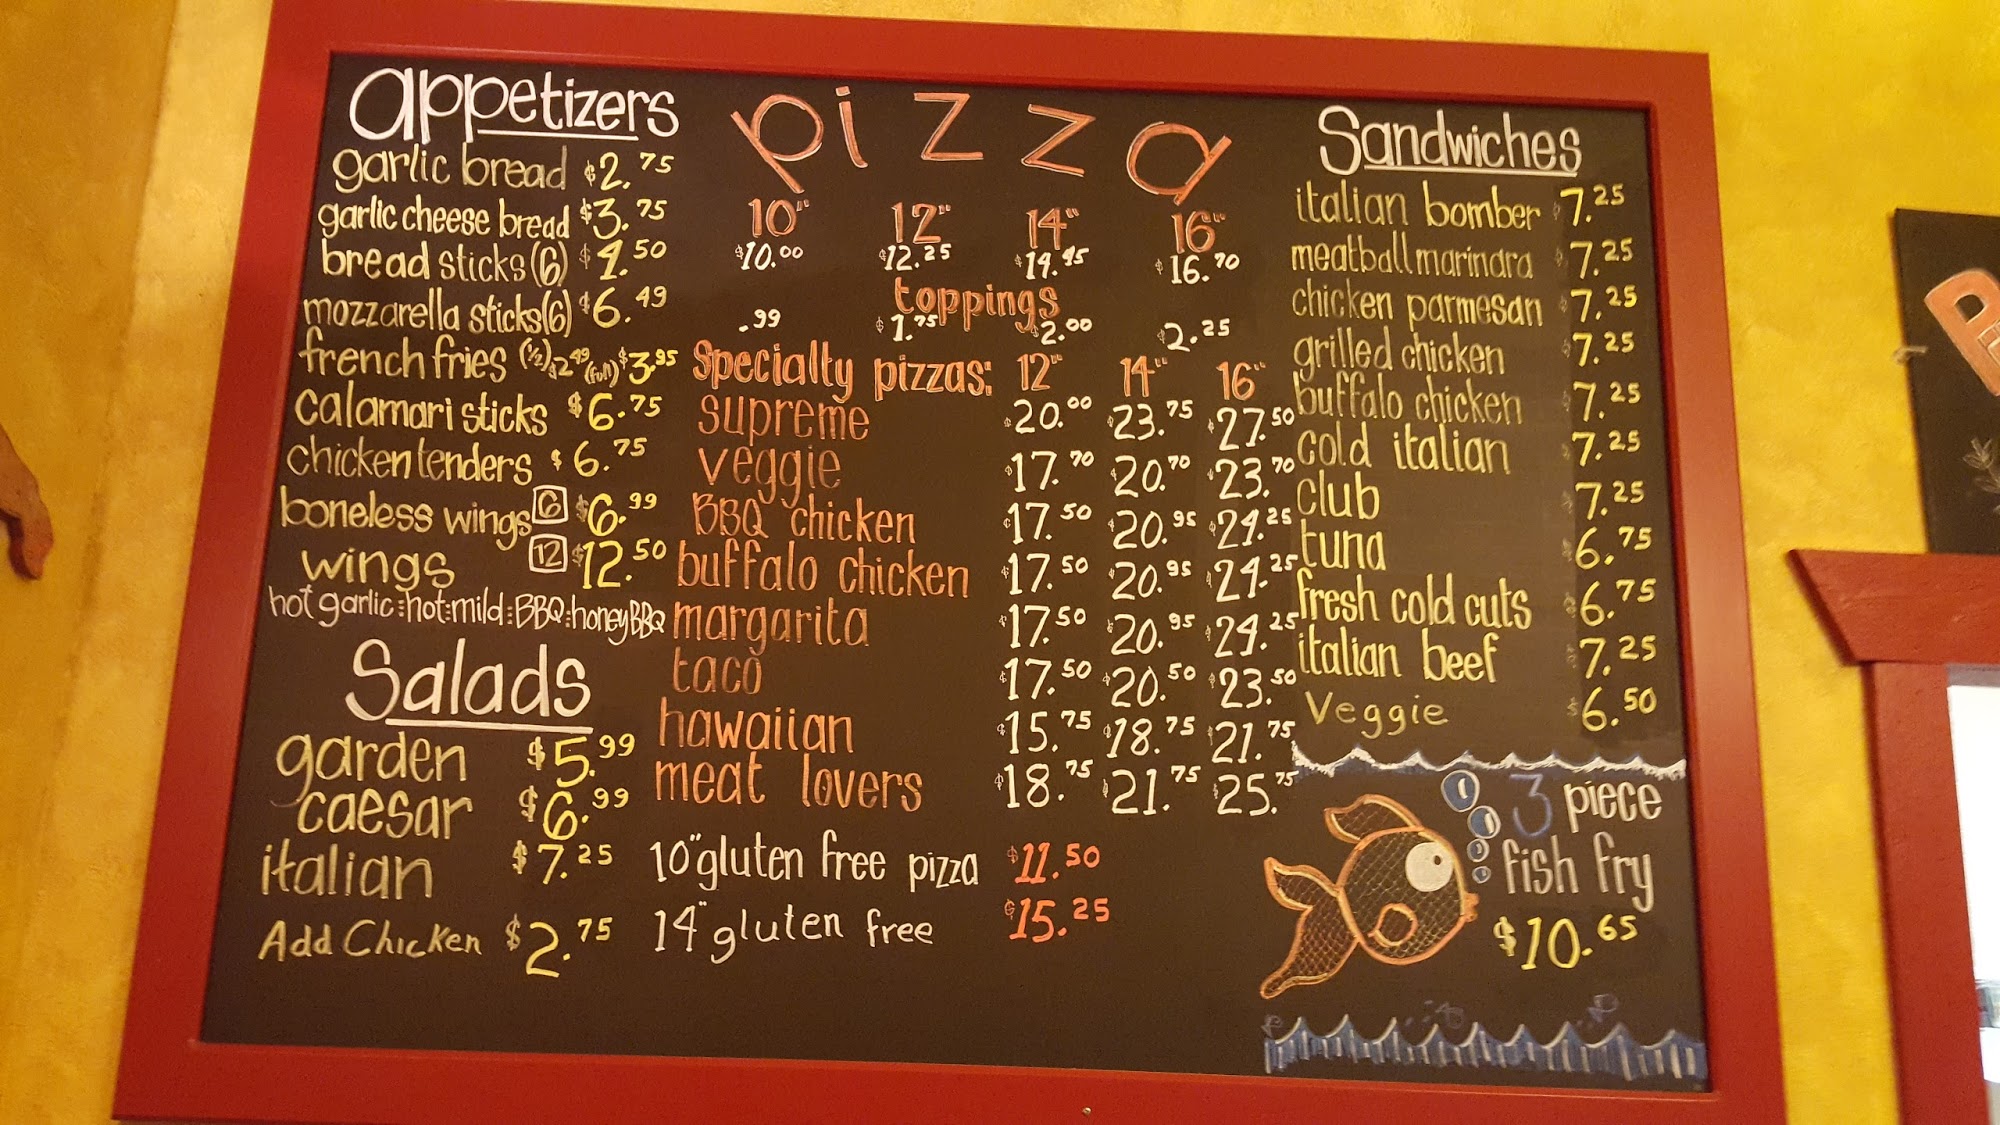 appetizers
garlic bread $2.75
garlic cheese bread $3.75
bread sticks (6) $4.50
mozzarella sticks (6) $6.49
french fries (1/2) $2.49 (full) $3.95
calamari sticks $6.75
chicken tenders $6.75
boneless wings 6 $6.99
wings 12 $12.50
hot garlic : hot : mild : BBQ : honey BBQ
Salads
garden $5.99
caesar $6.99
italian $7.25
Add Chicken $2.75
pizza
10" 12" 14" 16"
$10.00 $12.25 $14.45 $16.70
toppings
.99 $1.75 $2.00 $2.25
Specialty pizzas: 12" 14" 16"
supreme $20.00 $23.75 $27.50
veggie $17.70 $20.70 $23.70
BBQ chicken $17.50 $20.95 $24.25
buffalo chicken $17.50 $20.95 $24.25
margarita $17.50 $20.95 $24.25
taco $17.50 $20.50 $23.50
hawaiian $15.75 $18.75 $21.75
meat lovers $18.75 $21.75 $25.75
10" gluten free pizza $11.50
14" gluten free $15.25
Sandwiches
italian bomber $7.25
meatball marinara $7.25
chicken parmesan $7.25
grilled chicken $7.25
buffalo chicken $7.25
cold italian $7.25
club $7.25
tuna $6.75
fresh cold cuts $6.75
italian beef $7.25
Veggie $6.50
3 piece
fish fry
$10.65